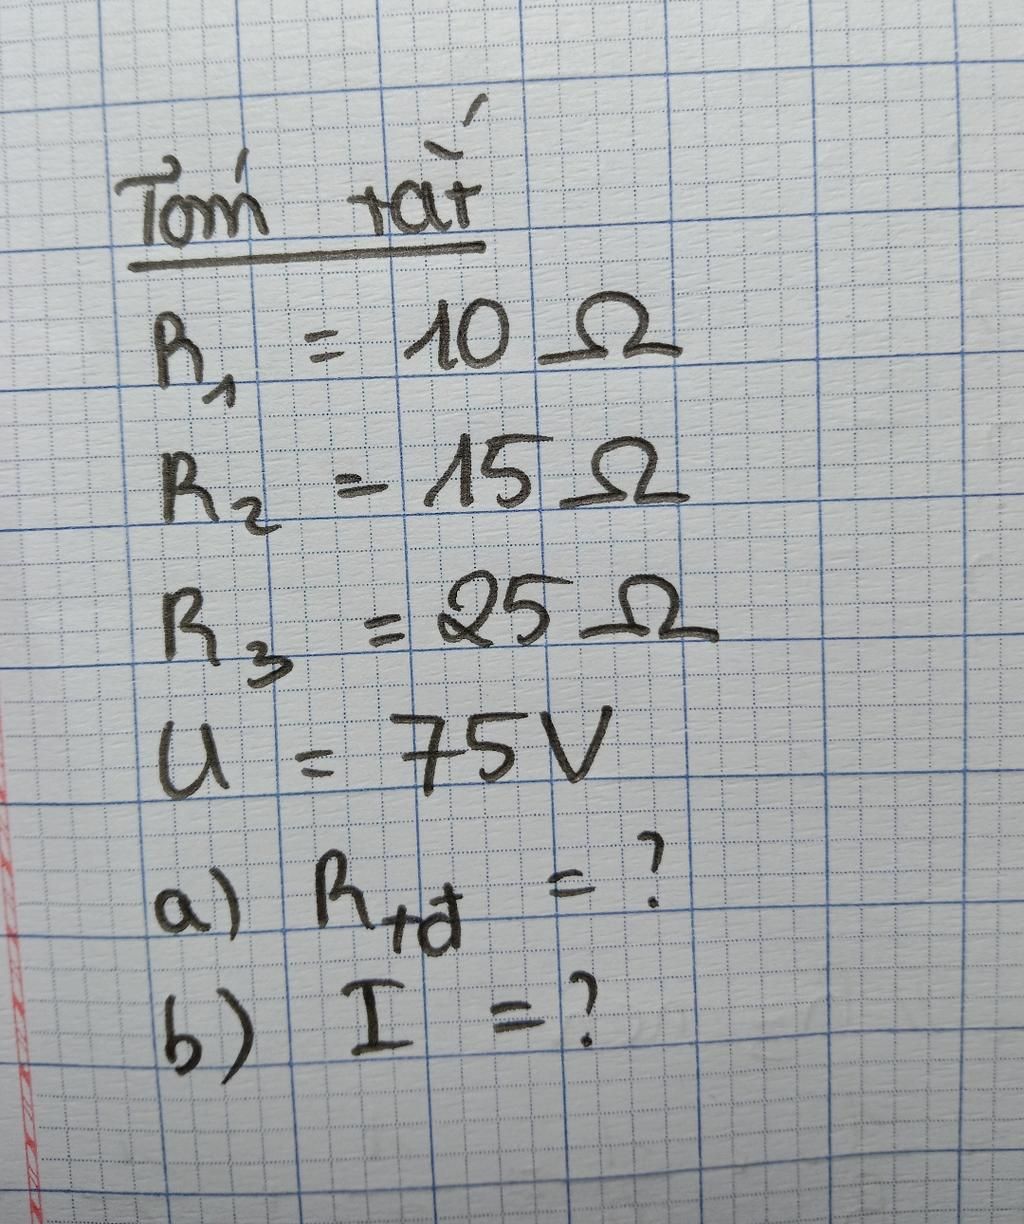 Tóm tắt
R₁ = 10 Ω
R₂ = 15 Ω
R₃ = 25 Ω
U = 75V
a) Rtđ = ?
b) I = ?